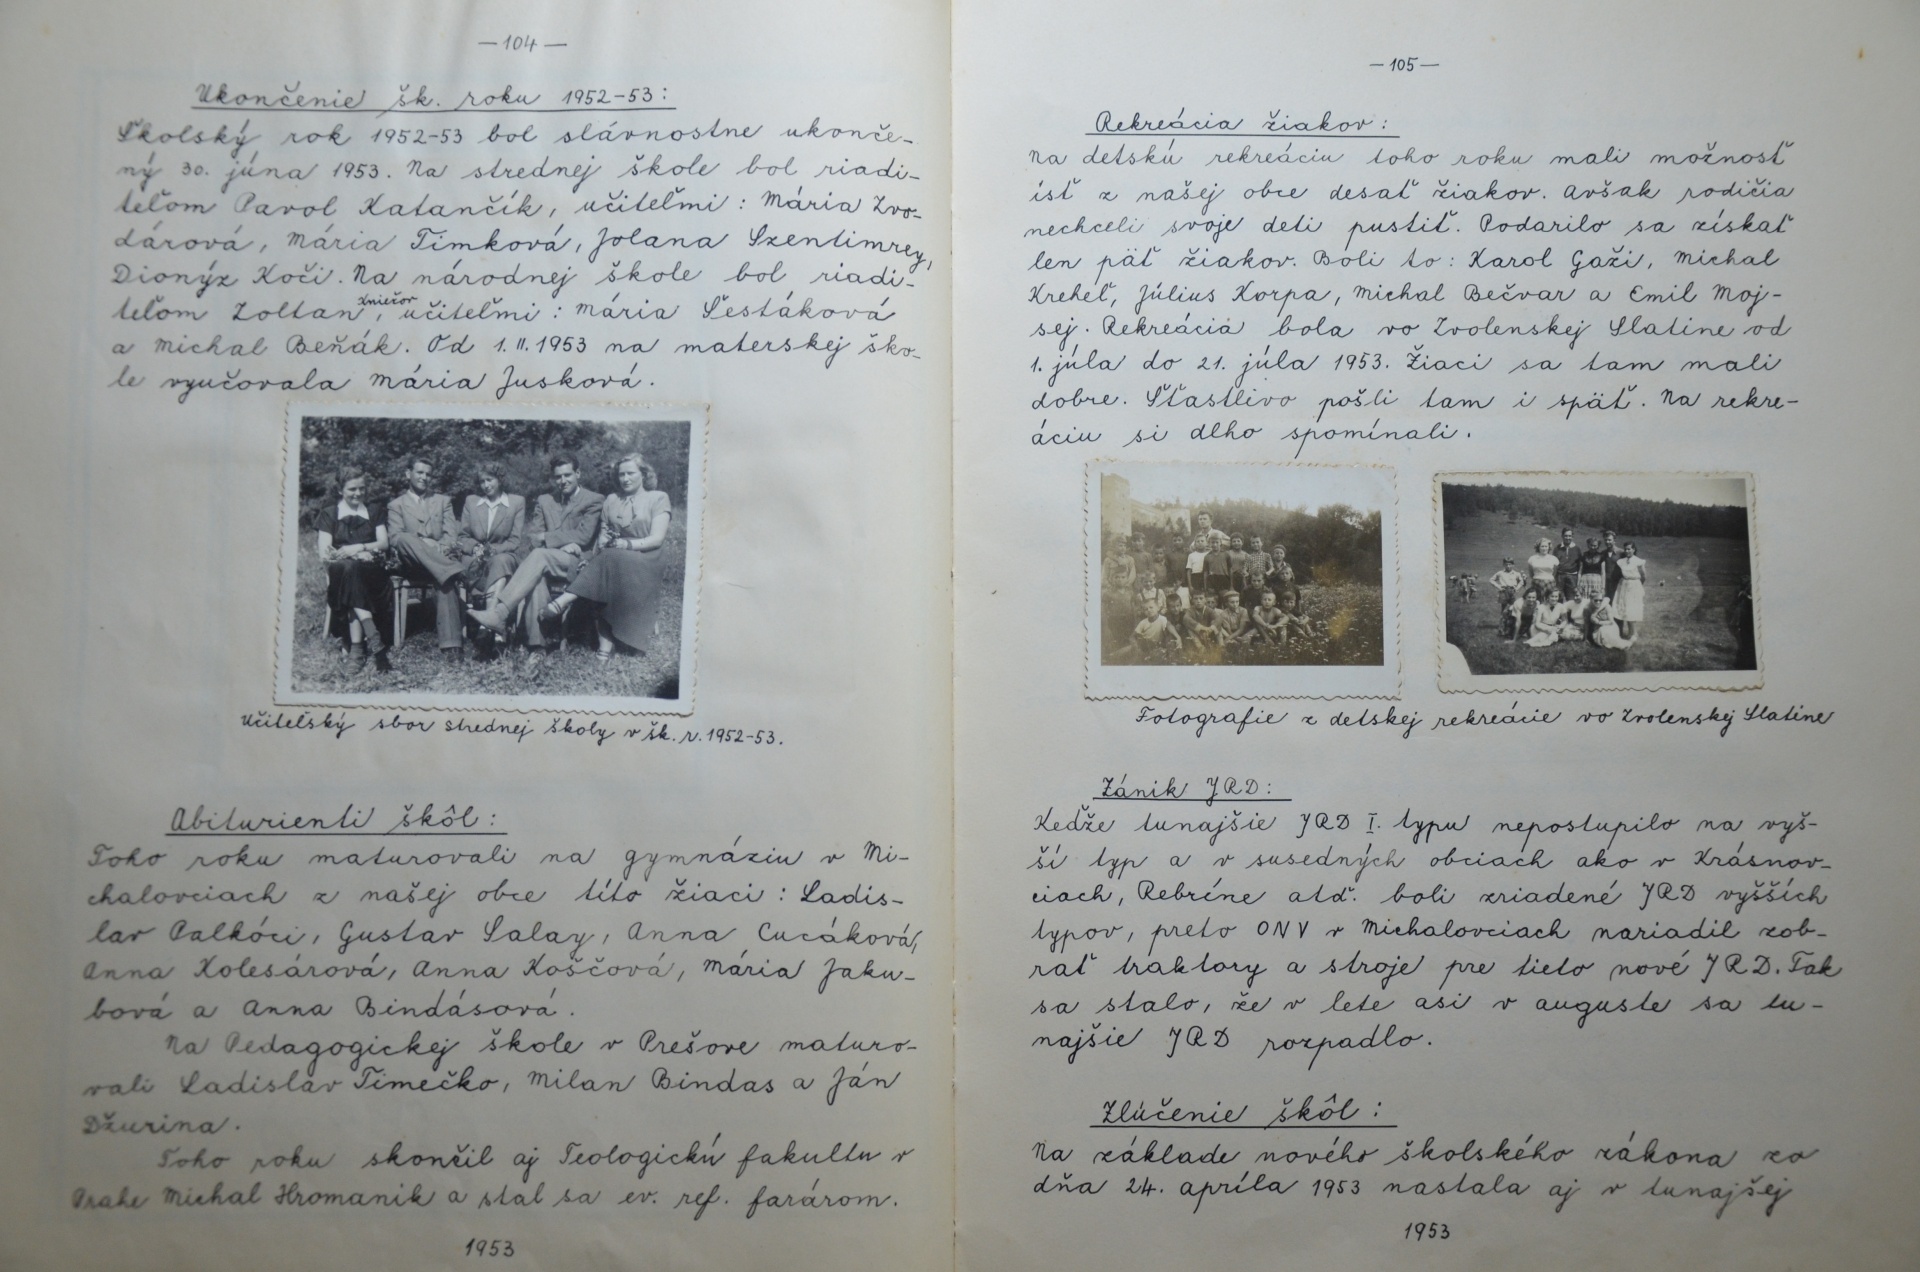 —104—
Ukončenie šk. roku 1952-53:
Školský rok 1952-53 bol slávnostne ukonče-
ný 30. júna 1953. Na strednej škole bol riadi-
teľom Pavol Katančík, učiteľmi: Mária Zvo-
dárová, Mária Timková, Jolana Szentimrey,
Dionýz Koči. Na národnej škole bol riadi-
teľom Zoltan Kniežor, učiteľmi: Mária Šestáková
a Michal Beňák. Od 1.II.1953 na materskej ško-
le vyučovala Mária Jusková.
Učiteľský sbor strednej školy v šk. r. 1952-53.
Abiturienti škôl:
Toho roku maturovali na gymnáziu v Mi-
chalovciach z našej obce títo žiaci: Ladis-
lav Palkóci, Gustav Salay, Anna Cucáková,
Anna Kolesárová, Anna Koščová, Mária Jaku-
bová a Anna Bindásová.
Na Pedagogickej škole v Prešove maturo-
vali Ladislav Timečko, Milan Bindas a Ján
Džurina.
Toho roku skončil aj Teologickú fakultu v
Prahe Michal Hromanik a stal sa ev. ref. farárom.
1953
—105—
Rekreácia žiakov:
Na detskú rekreáciu toho roku mali možnosť
ísť z našej obce desať žiakov. Avšak rodičia
nechceli svoje deti pustiť. Podarilo sa získať
len päť žiakov. Boli to: Karol Gaži, Michal
Kreheľ, Július Korpa, Michal Bečvar a Emil Moj-
sej. Rekreácia bola vo Zvolenskej Slatine od
1. júla do 21. júla 1953. Žiaci sa tam mali
dobre. Šťastlivo pošli tam i späť. Na rekre-
áciu si dlho spomínali.
Fotografie z detskej rekreácie vo Zvolenskej Slatine
Zánik JRD:
Keďže tunajšie JRD I. typu nepostupilo na vyš-
ší typ a v susedných obciach ako v Krásnov-
ciach, Rebríne atď. boli zriadené JRD vyšších
typov, preto ONV v Michalovciach nariadil zob-
rať traktory a stroje pre tieto nové JRD. Tak
sa stalo, že v lete asi v auguste sa tu-
najšie JRD rozpadlo.
Zlúčenie škôl:
Na základe nového školského zákona zo
dňa 24. apríla 1953 nastala aj v tunajšej
1953